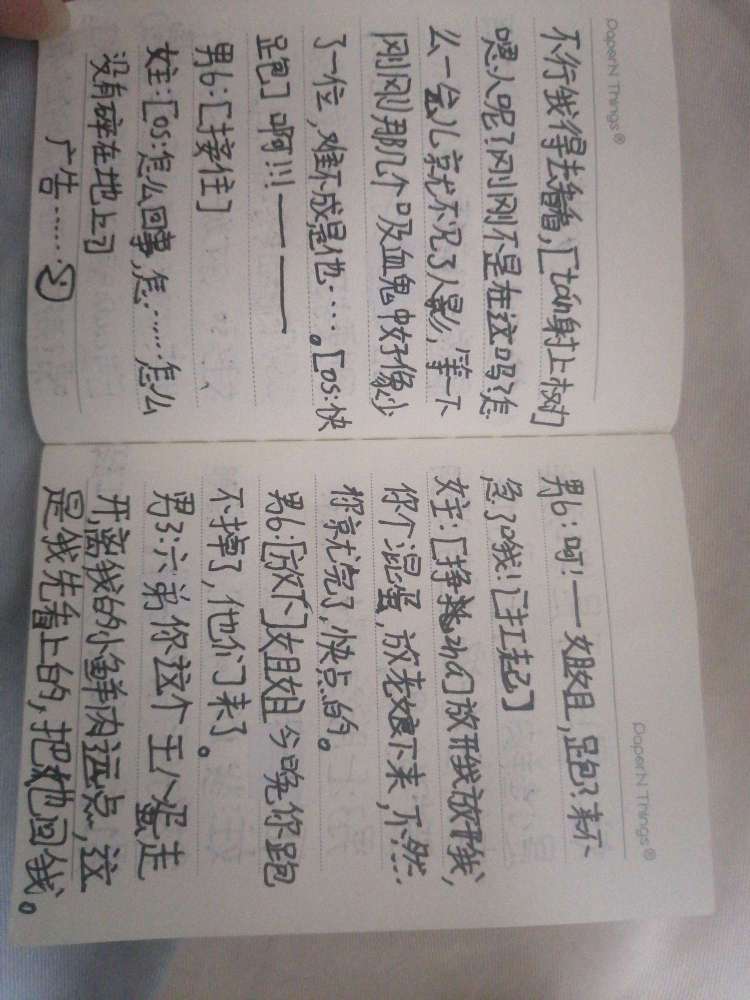 PaperN Things®
不行我得去看看,[tán射上树]
嗯,人呢?刚刚不是在这吗?怎
么一会儿就不见了人影,等一下
刚刚那几个吸血鬼中好像少
了一位,难不成是他……。[os:快
跑] 啊!!!——
男6:[接住]
女主:[os:怎么回事,怎……怎么
没有碎在地上]
广告……
PaperN Things®
男6:呵!——姐姐,跑?来不
急了哦![扛起]
女主:[挣扎zhá]放开我放开我,
你个混蛋,放老娘下来,不然…
你就完了,快点的。
男6:[放下]姐姐今晚你跑
不掉了,他们来了。
男3:六弟你这个王八蛋走
开,离我的小鲜肉远点,这
是我先看上的,把她回我。